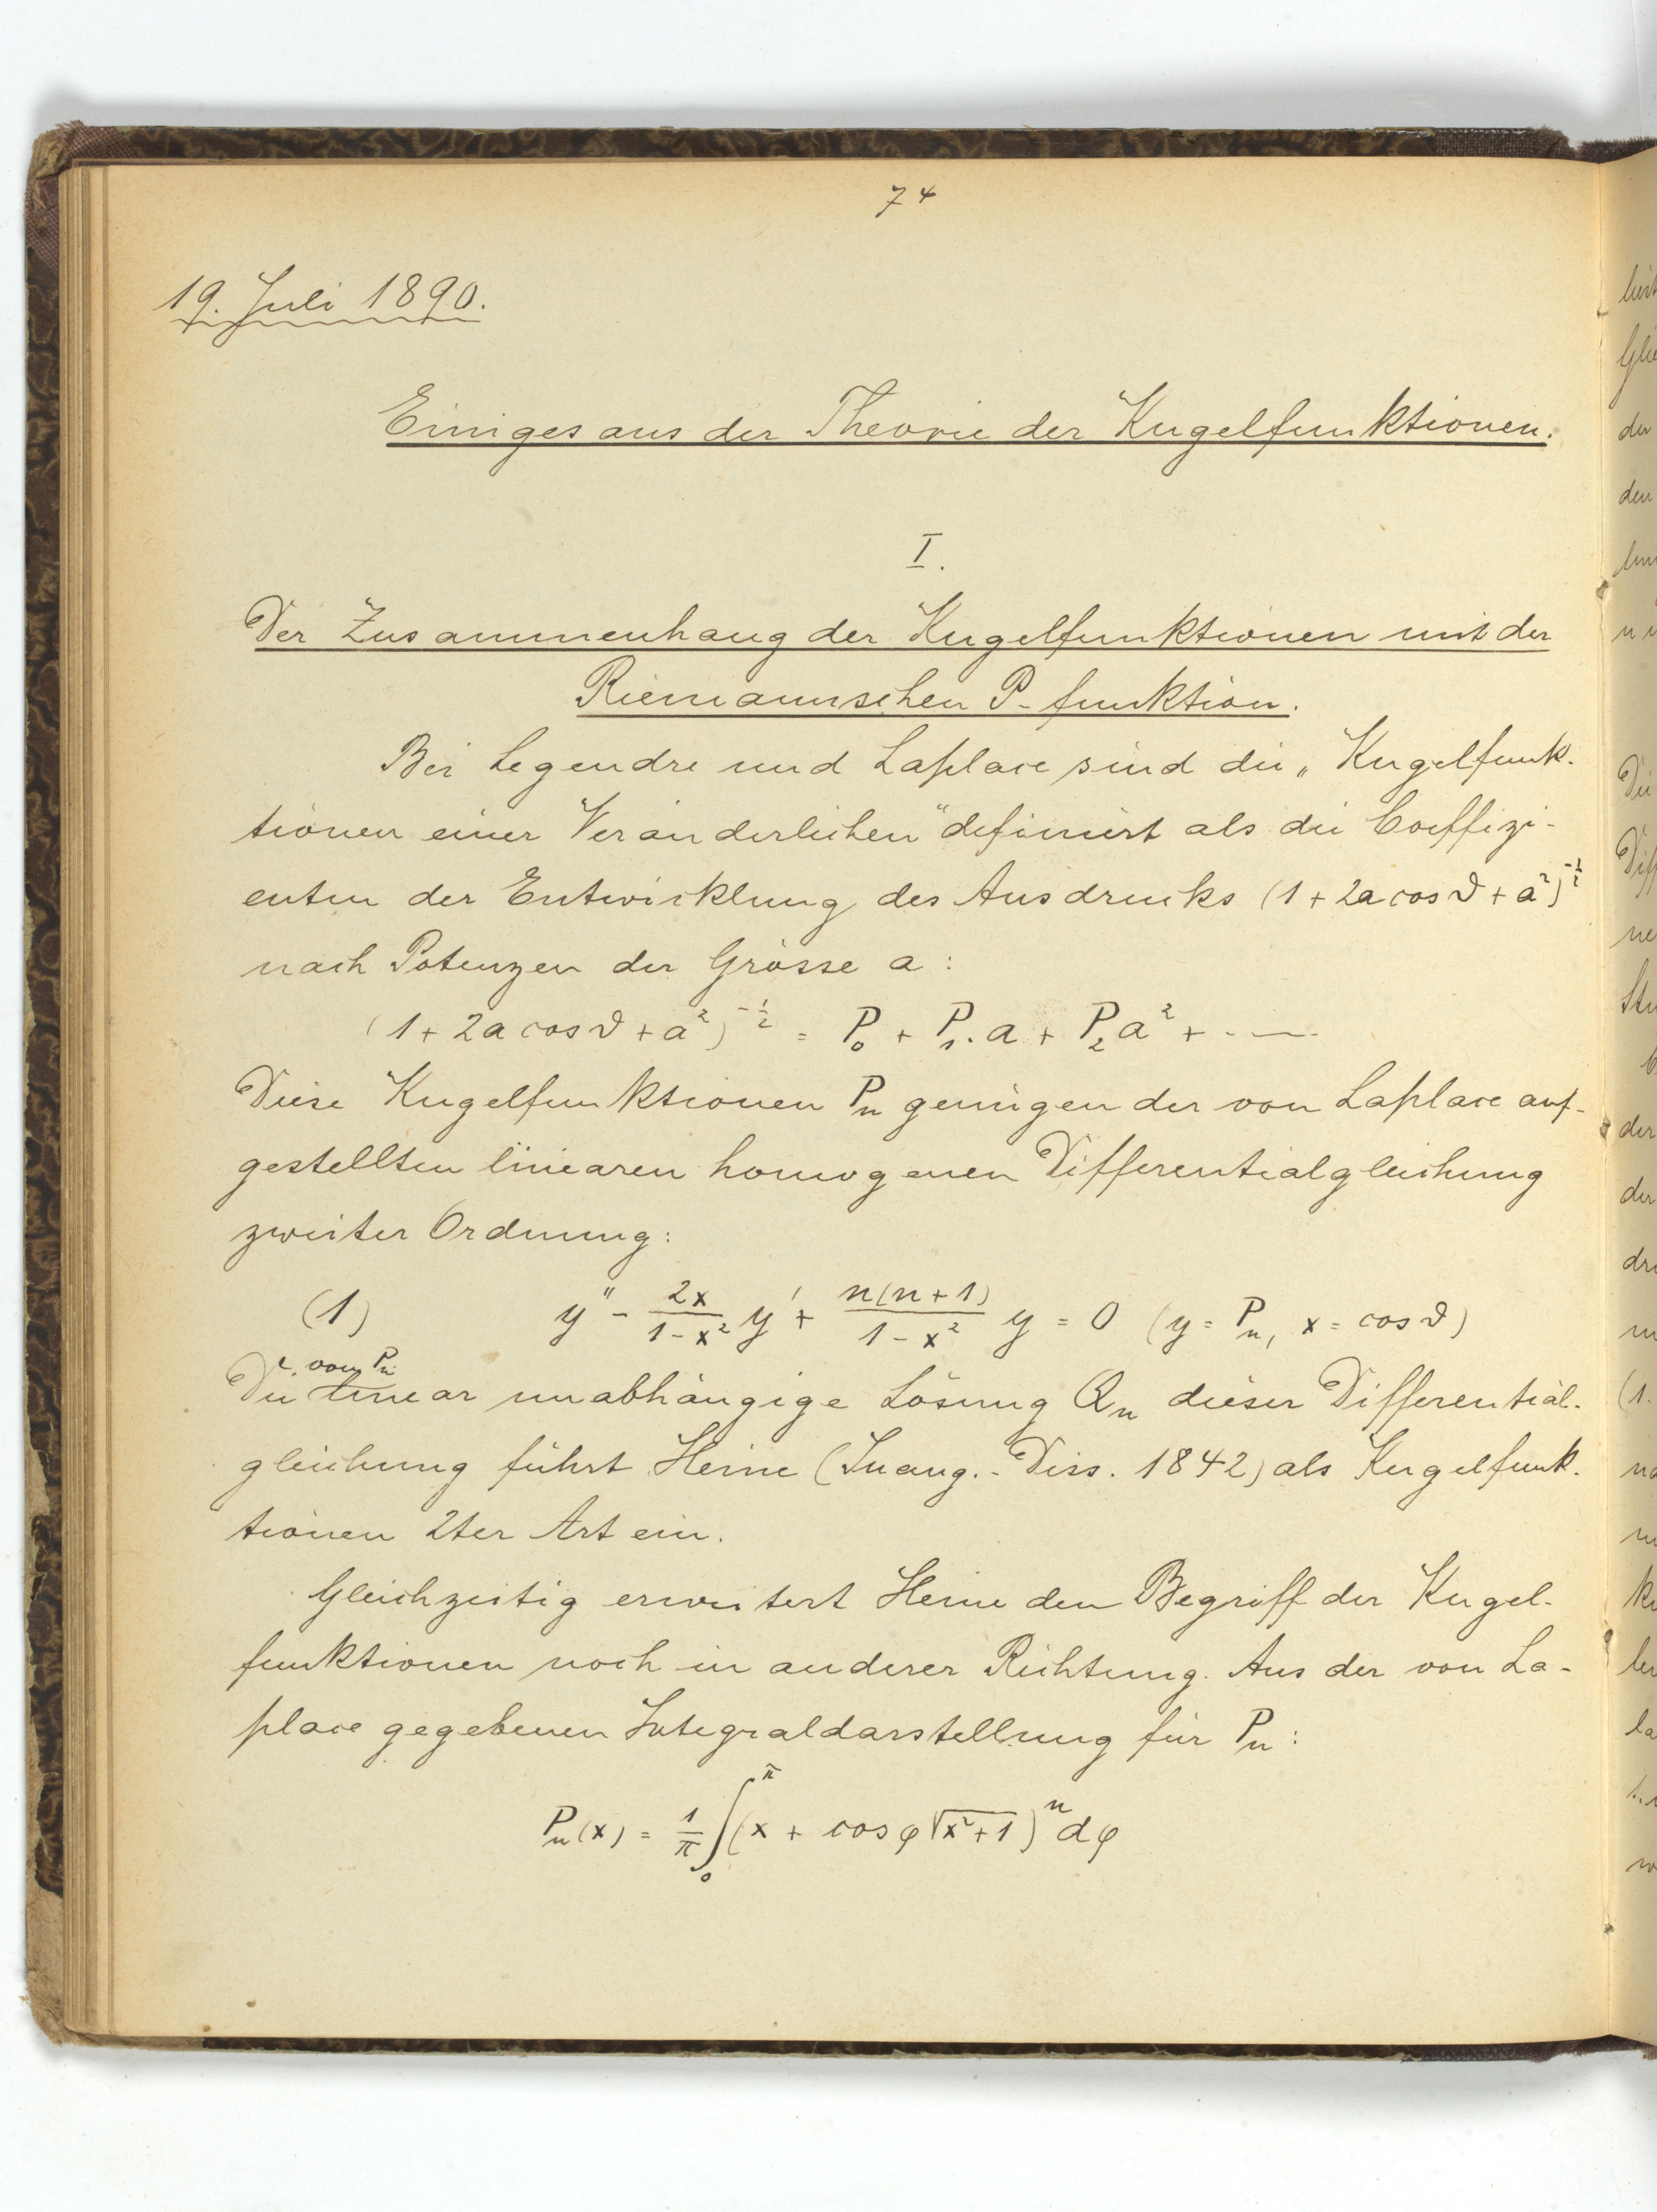 74
19. Juli 1890.
Einiges aus der Theorie der Kugelfunktionen.
I.
Der Zusammenhang der Kugelfunktionen mit der
Riemannschen P-funktion.
Bei Legendre und Laplace sind die „Kugelfunk-
tionen einer Veränderlichen“ definiert als die Coeffizi-
enten der Entwicklung des Ausdrucks (1 + 2a cos ϑ + a²)^{-1/2}
nach Potenzen der Grösse a:
(1 + 2a cos ϑ + a²)^{-1/2} = P₀ + P₁.a + P₂a² + . —
Diese Kugelfunktionen Pₙ genügen der von Laplace auf-
gestellten linearen homogenen Differentialgleichung
zweiter Ordnung:
(1) y'' - \frac{2x}{1-x²} y' + \frac{n(n+1)}{1-x²} y = 0 (y = Pₙ, x = cos ϑ)
von Pₙ
Die linear unabhängige Lösung Qₙ dieser Differential-
gleichung führt Heine (Inaug.-Diss. 1842) als Kugelfunk-
tionen 2ter Art ein.
Gleichzeitig erweitert Heine den Begriff der Kugel-
funktionen noch in anderer Richtung. Aus der von La-
place gegebenen Integraldarstellung für Pₙ:
Pₙ(x) = \frac{1}{π} ∫_0^π (x + cos φ √(x²+1))ⁿ dφ